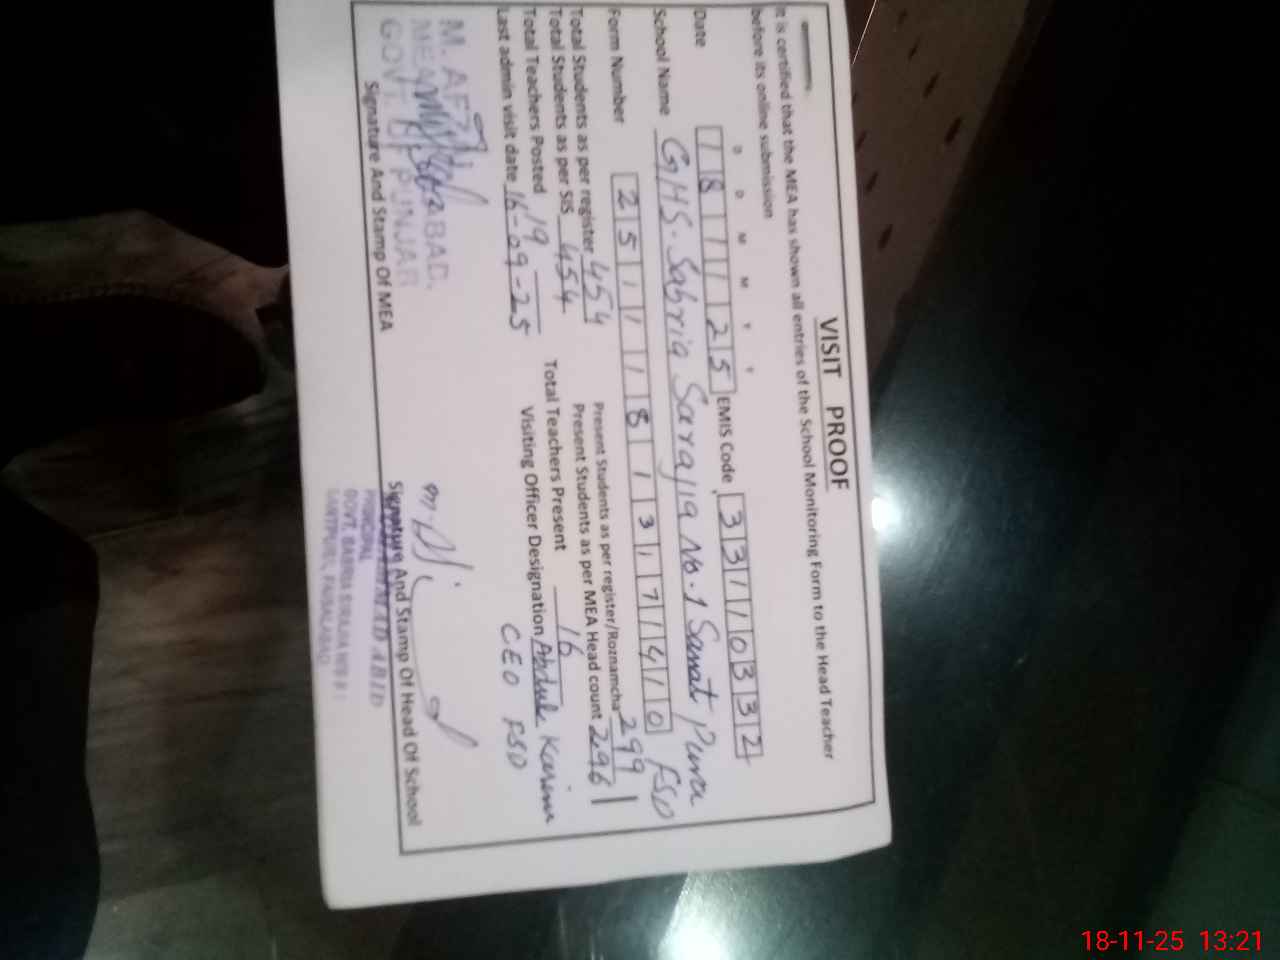 VISIT PROOF
It is certified that the MEA has shown all entries of the School Monitoring Form to the Head Teacher
before its online submission
D D M M Y Y
Date 18 11 25 EMIS Code 33110332
School Name GHS. Sabria Sarajia No. 1 Sanat Pura FSD
Form Number 2511181317140
Total Students as per register 454 Present Students as per register/Roznamcha 299
Total Students as per SIS 454 Present Students as per MEA Head count 296
Total Teachers Posted 19 Total Teachers Present 16
Last admin visit date 16-09-25 Visiting Officer Designation Abdul Karim
CEO FSD
M. AFZAL
GOVT. OF PUNJAB
Signature And Stamp Of MEA
Signature And Stamp Of Head Of School
PRINCIPAL
GOVT. SABRIA SIRAJIA
FAISALABAD
18-11-25 13:21